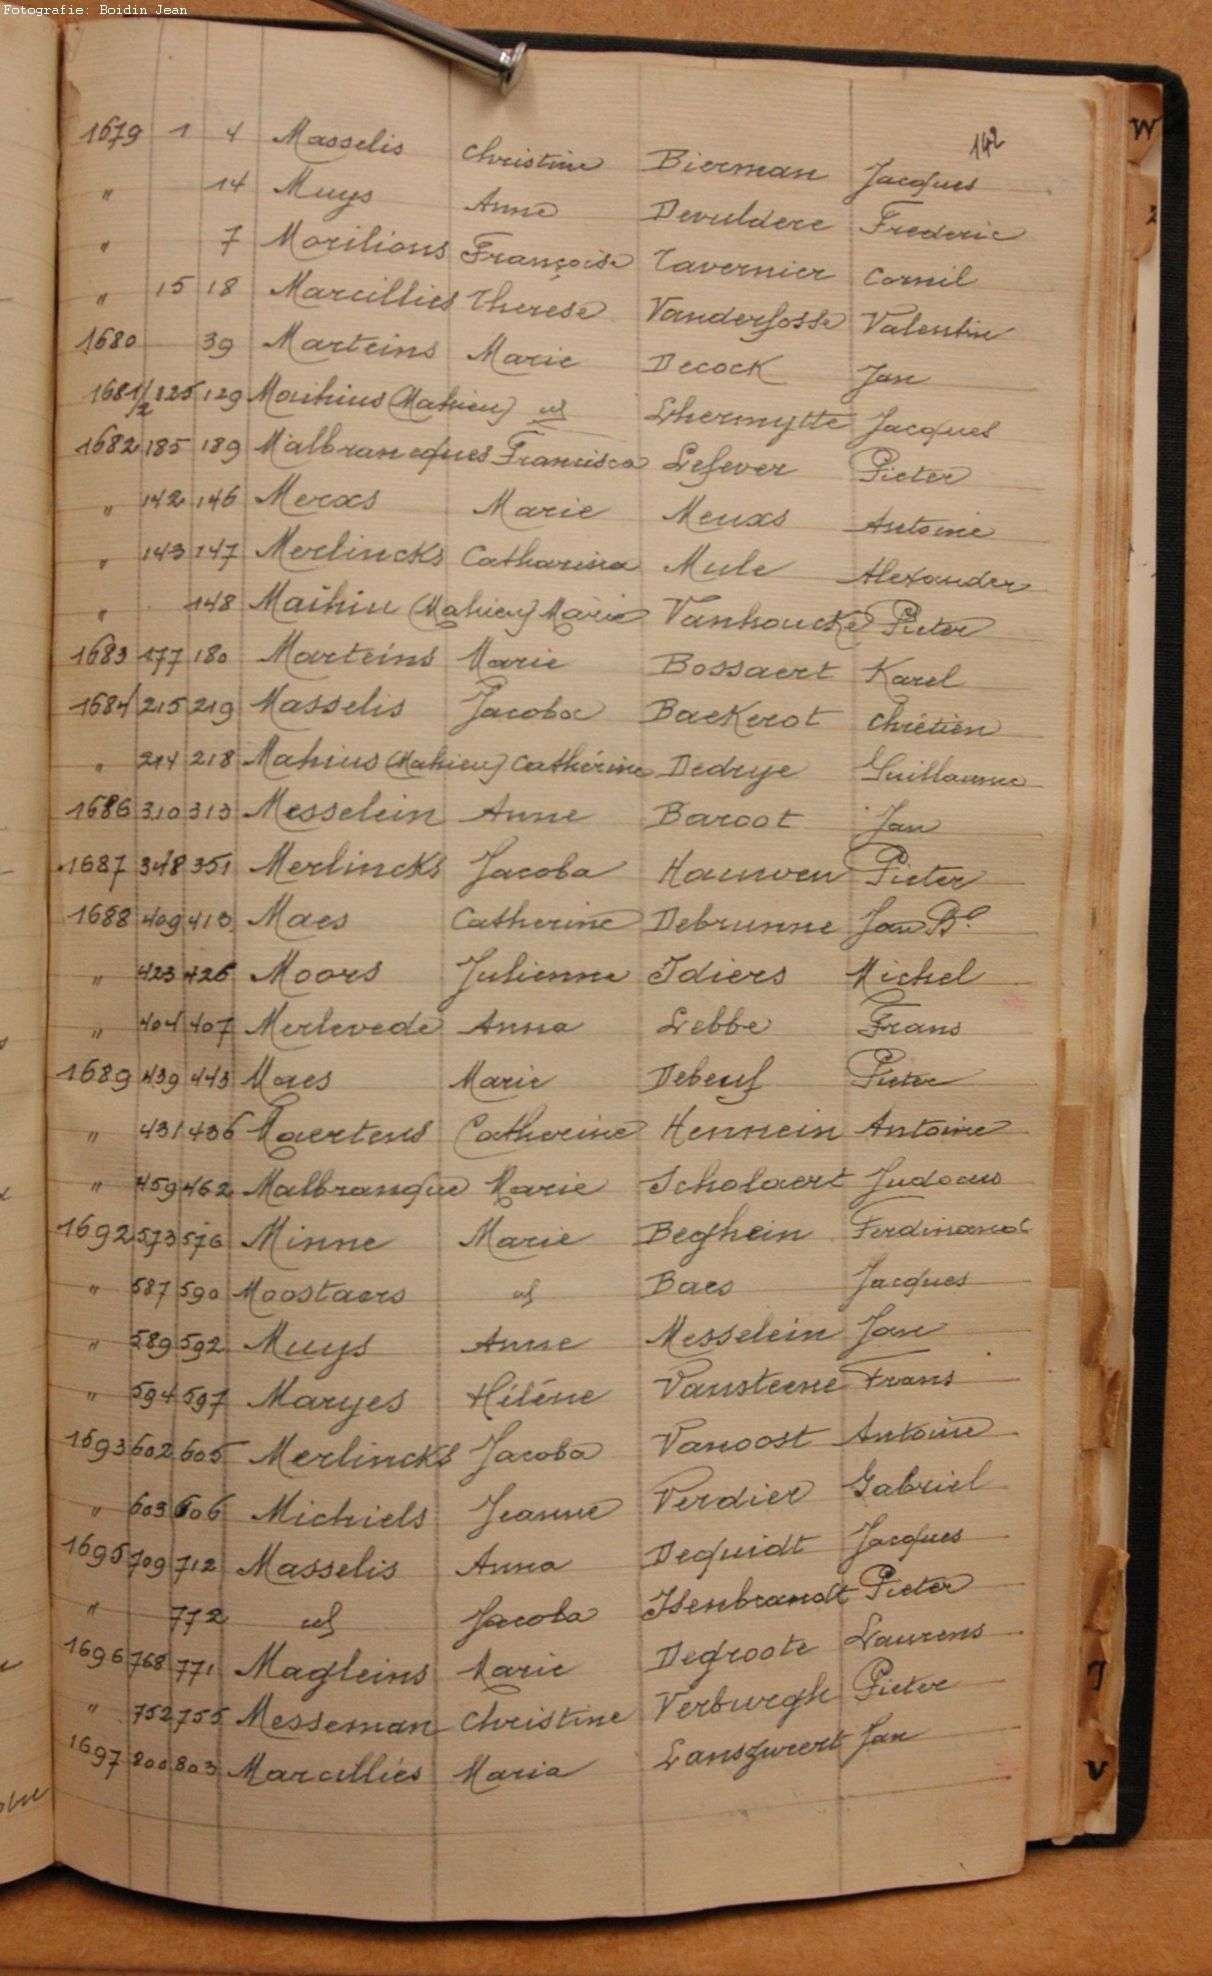 Fotografie: Boidin Jean
142
W
1679 1 4 Masselis Christine Bierman Jacques
" 14 Muys Anne Devuldere Frederic
" 7 Morilions Françoise Tavernier Cornil
" 15 18 Marcillies Therese Vanderfosse Valentin
1680 39 Marteins Marie Decock Jan
1681/2 125 129 Maihius (Mahieu) id Lhermytte Jacques
1682 185 189 Malbrancques Francisca Lefever Pieter
" 142 146 Merxs Marie Meuxs Antoine
" 143 147 Merlincks Catharina Mule Alexander
" 148 Maihiu (Mahieu) Marie Vanhoucke Pieter
1683 177 180 Marteins Marie Bossaert Karel
1684 215 219 Masselis Jacoba Baekerot Chrétien
" 214 218 Mahius (Mahieu) Cathérine Dedrye Guillaume
1686 310 313 Messelein Anne Baroot Jan
1687 348 351 Merlincks Jacoba Hauwen Pieter
1688 409 413 Maes Catherine Debrunne Jan Bte
" 423 426 Moors Julienne Idiers Michel
" 404 407 Merlevede Anna Lebbe Frans
1689 439 443 Maes Marie Debeuf Pieter
" 431 436 Maertens Catherine Hennein Antoine
" 459 462 Malbranque Marie Scholaert Judocus
1692 573 576 Minne Marie Beghein Ferdinand
" 587 590 Moostaers id Baes Jacques
" 589 592 Muys Anne Messelein Jan
" 594 597 Maryes Hélène Vansteene Frans
1693 602 605 Merlincks Jacoba Vanoost Antoine
" 603 606 Michiels Jeanne Verdier Gabriel
1695 709 712 Masselis Anna Dequidt Jacques
" 772 id Jacoba Isenbrandt Pieter
1696 768 771 Magleins Marie Degroote Laurens
" 752 755 Messeman Christine Verburgh Pieter
1697 800 803 Marcilliés Maria Lanszweert Jan
J
V